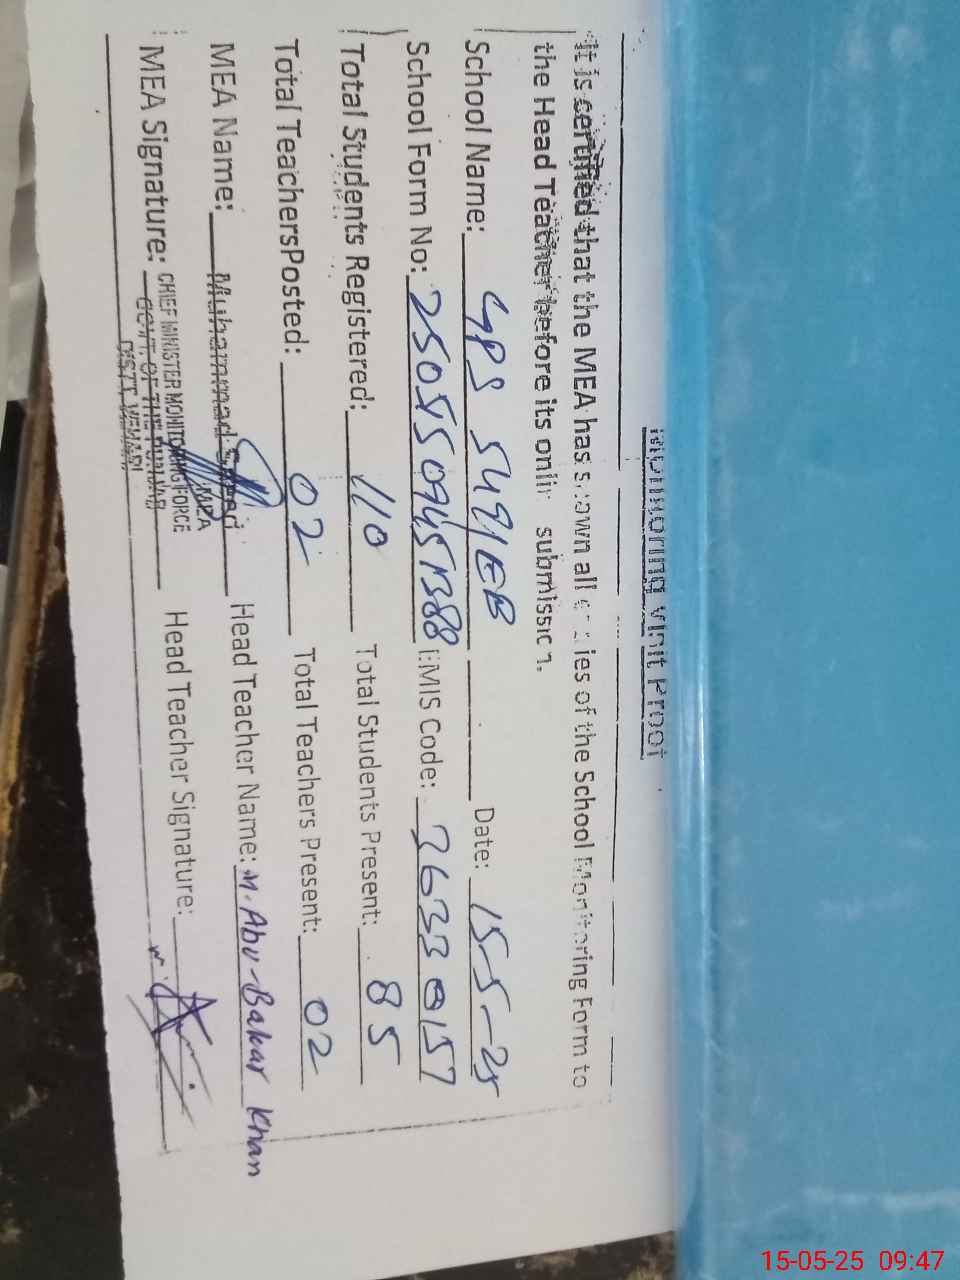 Monitoring Visit Proof
It is certified that the MEA has shown all entries of the School Monitoring Form to
the Head Teacher before its online submission.
School Name: GPS 549/EB Date: 15-5-25
School Form No: EMIS Code: 36330157
Total Students Registered: 110 Total Students Present: 85
Total TeachersPosted: 02 Total Teachers Present: 02
MEA Name: Muhammad Saeed Head Teacher Name: M. Abu-Bakar Khan
MEA
MEA Signature: Head Teacher Signature:
CHIEF MINISTER MONITORING FORCE
GOVT. OF THE PUNJAB
DISTT. VEHARI
15-05-25 09:47